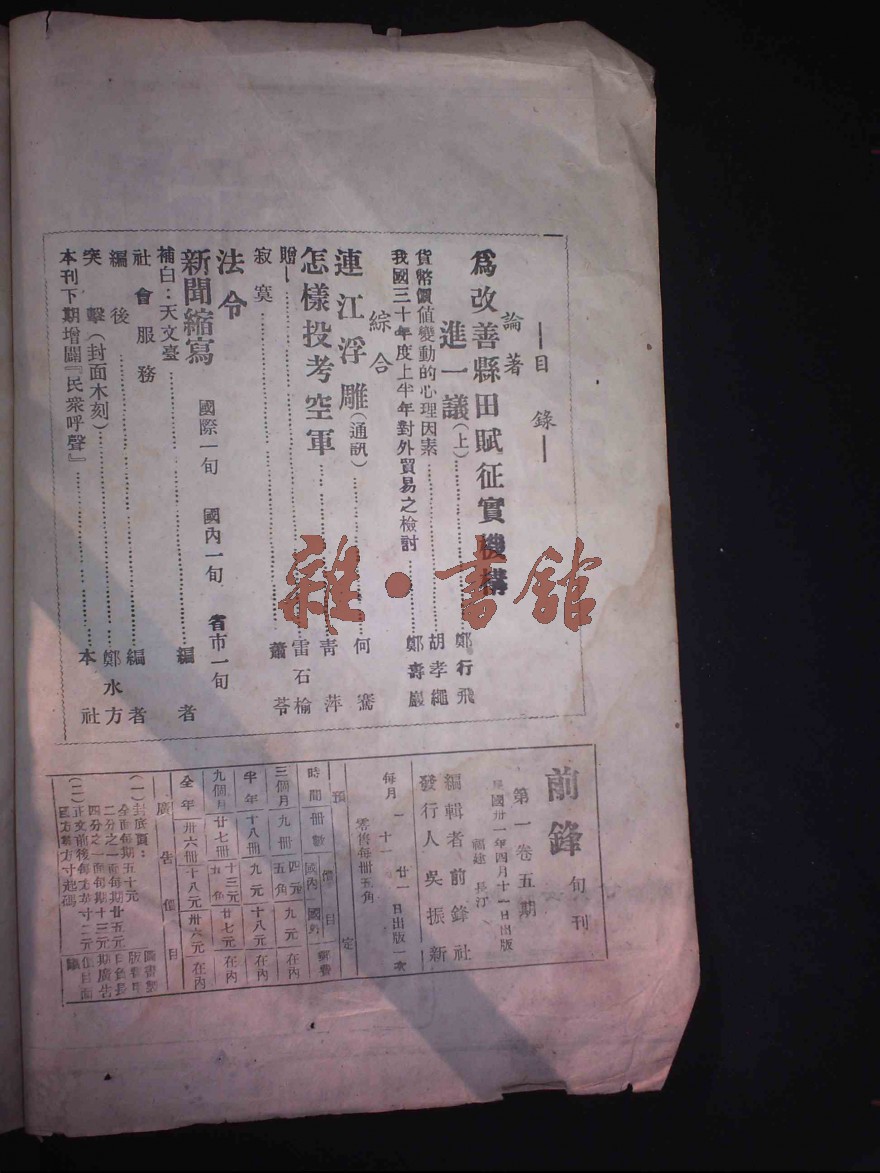 —目錄—
論著
為改善縣田賦征實機構
進一議(上)……鄭行飛
貨幣價值變動的心理因素……胡孝繩
我國三十年度上半年對外貿易之檢討……鄭壽巖
綜合
連江浮雕(通訊)……何騫
怎樣投考空軍……青萍
贈—……雷石榆
寂寞……蕭苓
法令
新聞縮寫 國際一旬 國內一旬 省市一旬
補白：天文臺……編者
社會服務
編後……編者
突擊(封面木刻)……鄭水方
本刊下期增闢『民衆呼聲』……本社
前鋒旬刊
第一卷五期
國卅一年四月十一日出版
福建 長汀
編輯者 前鋒社
發行人 吳振新
每月一 十一 廿一日出版一次
零售每冊五角
預定
時間 冊數 價目 國內 國外 郵費
三個月 九冊 四元五角 九元 在內
半年 十八冊 九元 十八元 在內
九個月 廿七冊 十三元五角 廿七元 在內
全年 卅六冊 十八元 卅六元 在內
廣告價目
(一)封底頁：
全面每期五十元
二分之一面每期廿五元
四分之一面每期十三元
(二)正文前後每方寸二元
四方寸起碼
雜·書館